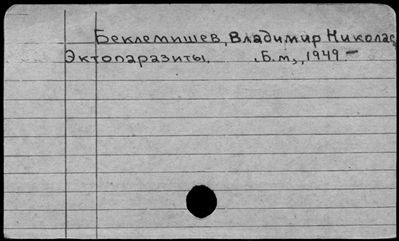 Беклемишев, Владимир Николае
Эктопаразиты. Б.м., 1949-